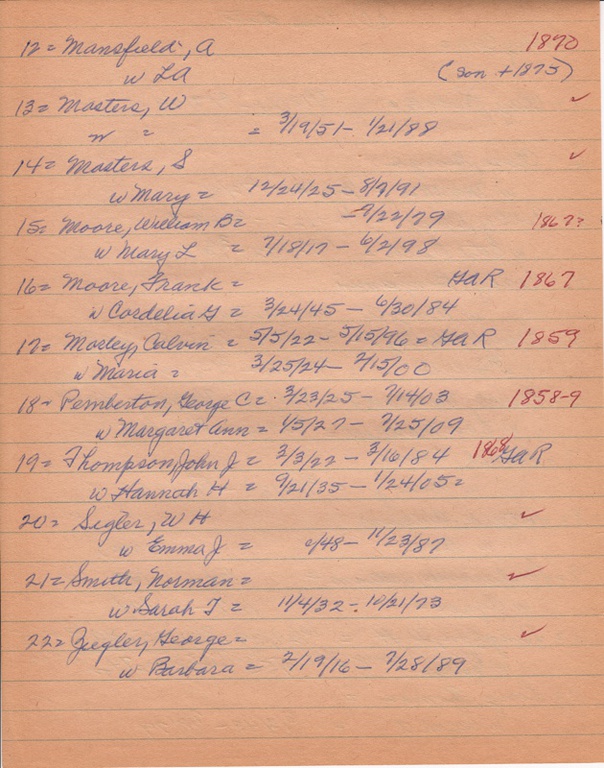 12 = Mansfield, A 1870
w LA (son +1875)
13 = Masters, W ✓
w " = 3/19/51 - 1/21/88
14 = Masters, S ✓
w Mary = 12/24/25 - 8/7/91
15 = Moore, William B = - 9/22/79 1867?
w Mary L = 7/18/17 - 6/2/98
16 = Moore, Frank = GaR 1867
w Cordelia G = 3/24/45 - 6/30/84
17 = Morley, Calvin = 5/5/22 - 5/15/96 = GaR 1859
w Maria = 3/25/24 - 2/15/00
18 - Pemberton, George C = 3/23/25 - 7/14/03 1858-9
w Margaret Ann = 1/5/27 - 7/25/09
19 = Thompson, John J = 2/3/22 - 3/16/84 1868 GaR
w Hannah H = 9/21/35 - 1/24/05 =
20 = Sigler, W H ✓
w Emma J = /48 - 11/23/87
21 = Smith, Norman = ✓
w Sarah T = 11/4/32 - 10/21/73
22 = Ziegler, George = ✓
w Barbara = 2/19/16 - 7/28/89